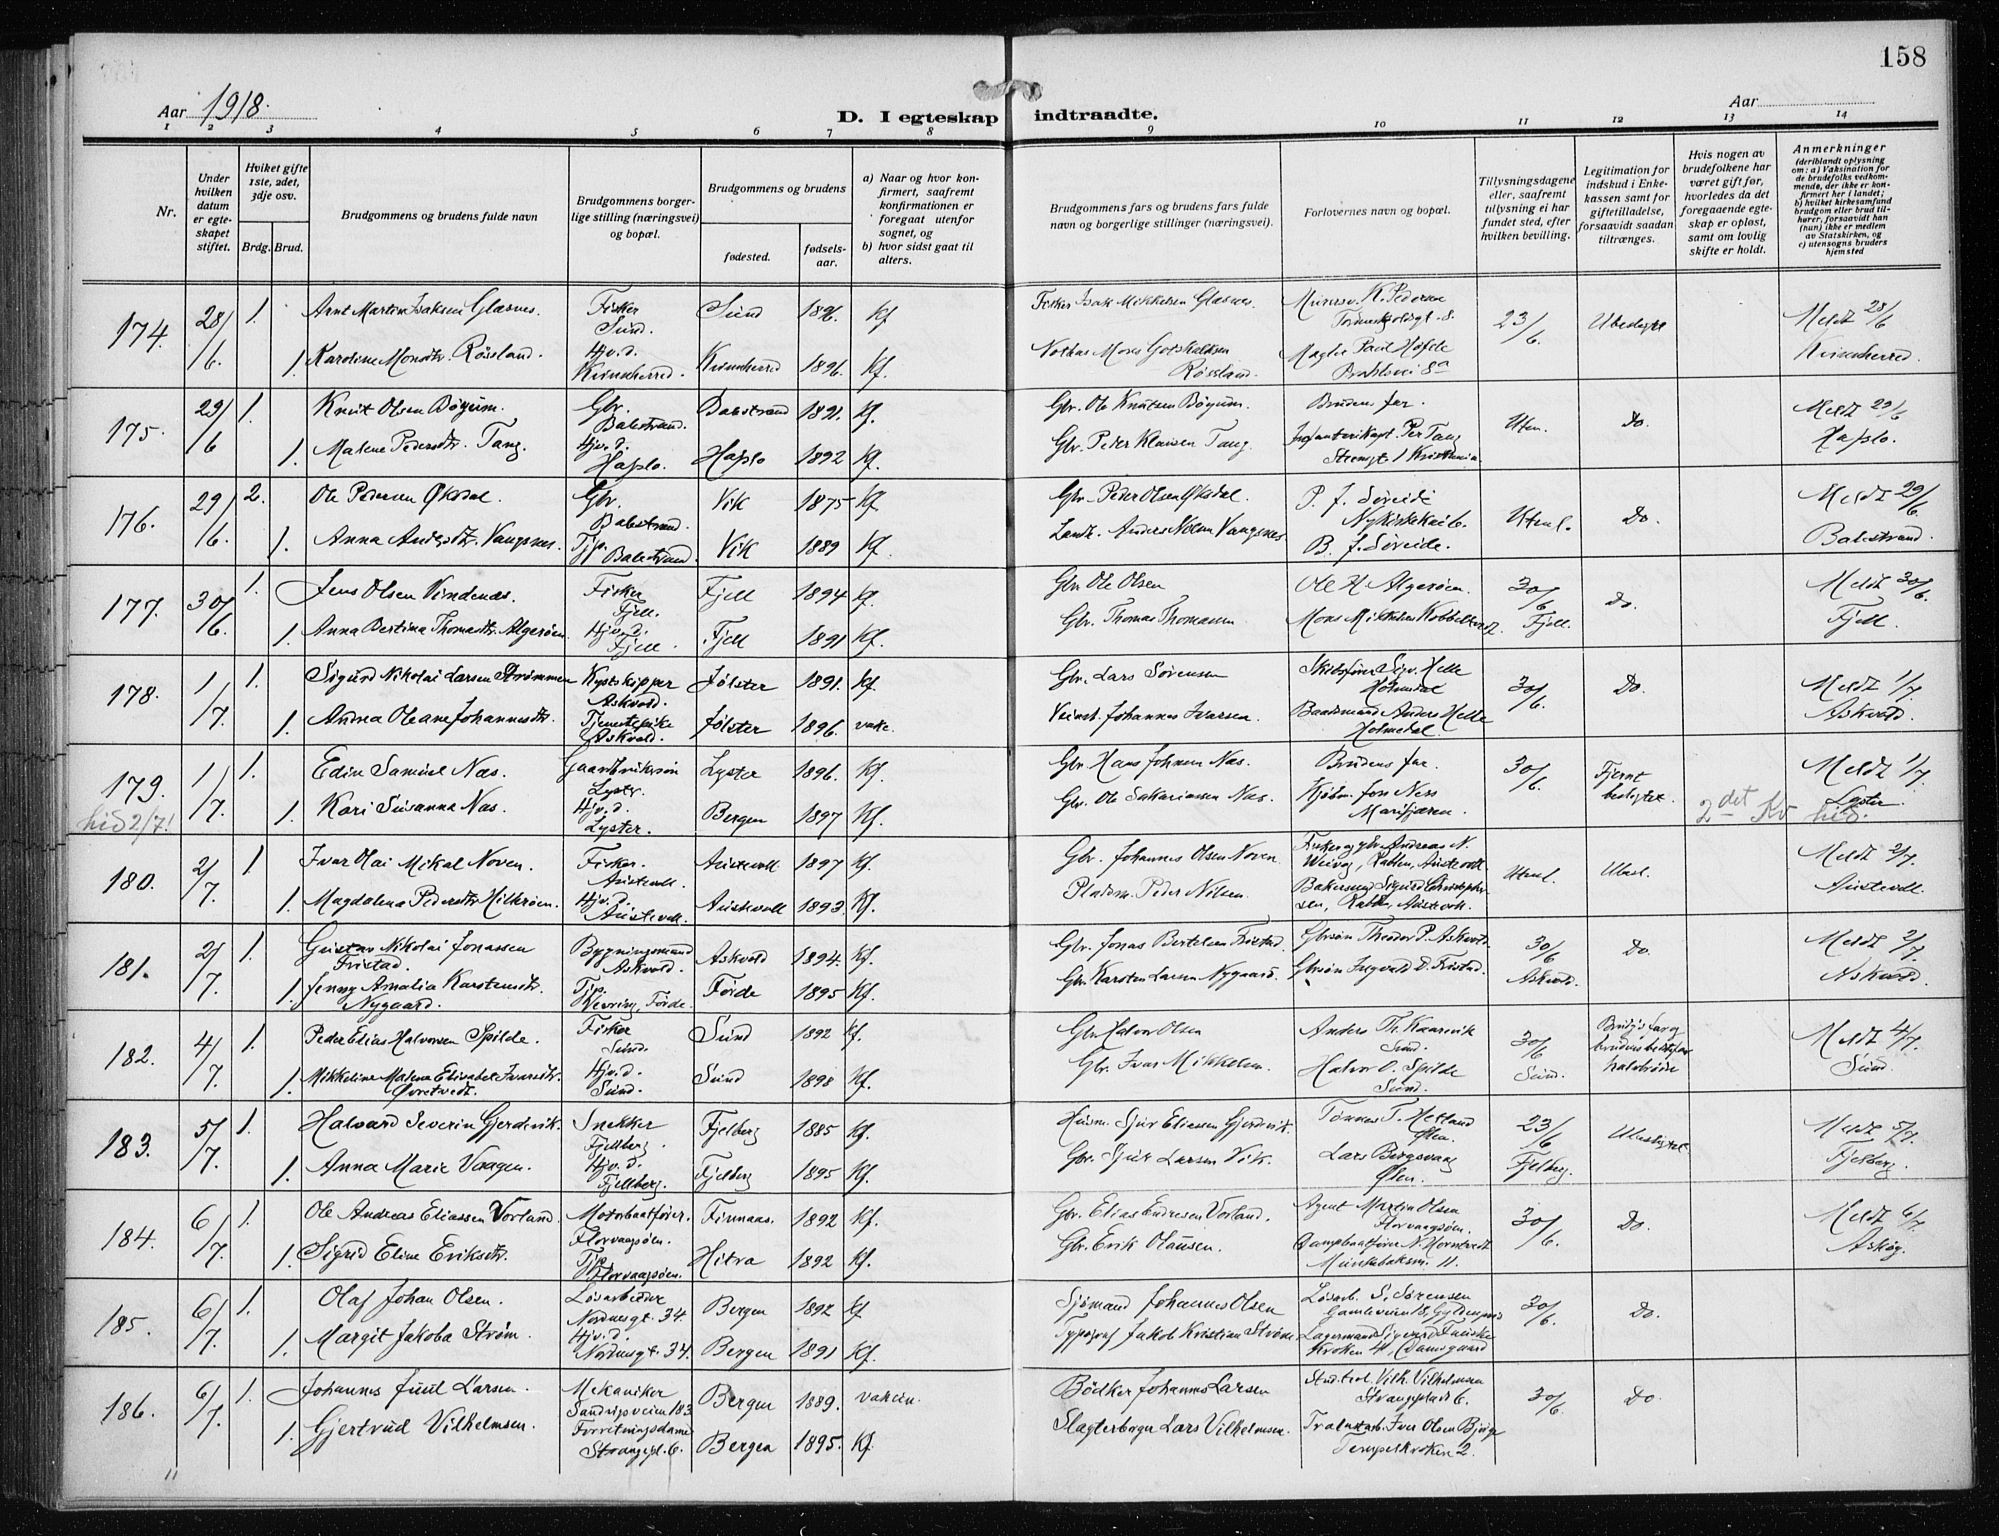 158
Aar 1918.
D. I egteskap indtraadte.
Aar
1 2 3 4 5 6 7 8 9 10 11 12 13 14
Nr.
Under hvilken datum er egteskapet stiftet.
Hviket gifte 1ste, 2det, 3dje osv.
Brdg. Brud.
Brudgommens og brudens fulde navn
Brudgommens borgerlige stilling (næringsvei) og bopæl.
Brudgommens og brudens
fødested.
fødselsaar.
a) Naar og hvor konfirmert, saafremt konfirmationen er foregaat utenfor sognet, og
b) hvor sidst gaat til alters.
Brudgommens fars og brudens fars fulde navn og borgerlige stillinger (næringsvei).
Forlovernes navn og bopæl.
Tillysningsdagene eller, saafremt tillysning ei har fundet sted, efter hvilken bevilling.
Legitimation for indskud i Enkekassen samt for giftetilladelse, forsaavidt saadan tiltrænges.
Hvis nogen av brudefolkene har været gift før, hvorledes da det foregaaende egteskap er opløst, samt om lovlig skifte er holdt.
Anmerkninger
(deriblandt oplysning om: a) Vaksination for de brudefolks vedkommende, der ikke er konfirmert her i landet; b) hvilket kirkesamfund brudgom eller brud tilhører, forsaavidt han (hun) ikke er medlem av Statskirken, og c) utensogns bruders hjemsted
174. 28/6 1. Arnt Martin Isaksen Glasnes. Fisker Sund. Sund 1896. Kf Fisker Isak Mikkelsen Glasnes. K. Pedersen 23/6 Ubeslegtet Meldt 28/6
1. Karoline Monsdtr. Røssland. Hjv. d. Kvinnherred. Kvinnherred 1896. Kf. Mons Gotskalksen Røssland. Kvinnherred.
175. 29/6 1. Knut Olsen Bøyum. Gbr. Balestrand. Balestrand 1891. Kf. Gbr. Ole Knutsen Bøyum. Brudens far. Uten. Do. Meldt 29/6
1. Malene Pedersdtr. Tang. Hjv. d. Haflo. Haflo 1892 Kf. Gbr. Peder Klausen Tang. Per Tang Kristiania Haflo.
176. 29/6 2. Ole Pedersen Øksdal. Gbr. Balestrand. Vik 1875 Kf Gbr. Peder Olsen Øksdal. P. J. Søreide Utenl. Do. Meldt 29/6
1. Anna Andersdt. Vangsnes. Tjp. Balestrand Vik 1889 Kf. Landh. Anders Vangsnes B. J. Søreide. Balestrand.
177. 30/6. 1. Jens Olsen Vindenes. Fisker Fjell. Fjell 1894 Kf. Gbr. Ole Olsen Ole H. Algerøen. 30/6 Do. Meldt 30/6.
1. Anna Bertina Thomasdtr. Algerøen. Hjv. d. Fjell. Fjell 1891 Kf. Gbr. Thomas Thomassen Mons Mikkelsen Fjell. Fjell
178. 1/7 1. Sigurd Nikolai Larsen Strømmen Kystskipper Askvold. Jølster 1891. Kf. Gbr. Lars Sørensen Helle Holmedal 30/6. Do. Meldt 1/7
1. Andrea Oleane Johannesdtr. Tjenestepike Askvold. Jølster 1896. Johannes Ivarsen. Baadsmand Anders Helle Holmedal Askvold.
179. 1/7 1. Edin Samuel Næs. Lyster 1896. Kf. Gbr. Hans Johnsen Næs. Brudens far. 30/6 Fjernt beslegtet. Meldt 1/7
hid 2/7! 1. Kari Susanna Næs. Hjv. d. Lyster. Bergen 1897 Kf. Gbr. Ole Sakariassen Næs. Kjøbm. Jens Ness Marifjæren. 2det Kv hid. Lyster.
180. 2/7 1 Ivar Olai Mikal Noven. Fisker. Austevoll. Austevoll 1897 Kf. Gbr. Johannes Olsen Noven Andreas N. Utenl. Ubesl. Meldt 2/7.
1. Magdalena Pedersdtr Hilkrøen. Hjv. d. Austevoll. Austevoll 1893. Kf. Pladsm. Peder Nilsen. Austevoll. Austevoll
181. 2/7 1. Gustav Nikolai Jonassen Fristad. Bygningsmand Askvold. Askvold 1894. Kf. Gbr. Jonas Bertelsen Fristad. Gbrsøn Theodor P. Askvold. 30/6 Do. Meldt 2/7
1. Jenny Amalia Karstensdtr. Nygaard. Tjp. Vevring, Førde. Førde 1895 Kf. Gbr. Karsten Larsen Nygaard. Gbrsøn Ingvald D. Fristad. Askvold. Askvold
182. 4/7 1. Peder Elias Halvorsen Spilde. Fisker Sund. Sund 1892 Kf. Gbr. Halvor Olsen Anders Th. Kaarevik Sund. 30/6 Meldt 4/7.
1. Mikkeline Malena Elisabet Ivarsdtr. Øvretvedt. Hjv. d. Sund. Sund 1898 Kf. Gbr. Ivar Mikkelsen. Halvor O. Spilde Sund. Sund. halvbrødre Sund.
183. 5/7 1. Halvard Severin Gjerdevik. Snekker Fjellberg. Fjelberg 1885 Kf. Husm. Sjur Eliassen Gjerdevik. Tønnes T. Hetland Ølen. 23/6 Ubeslegtet Meldt 5/7.
1. Anna Marie Vaagen. Hjv. d. Fjellberg. Fjelberg 1895 Kf. Gbr. Sjur Larsen Vik. Lars Bergsvaag Ølen. Fjelberg. Fjelberg.
184. 6/7 1. Ole Andreas Eliassen Vorland. Motorbaatfører. Florvaagsøen. Finnaas. 1892 Kf. Gbr. Elias Endresen Vorland. Agent Martin Olsen Florvaagsøen. 30/6. Do. Meldt 6/7
1. Sigrid Eline Eriksdtr. Tjp. Florvaagsøen. Hitra 1892 Kf. Gbr. Erik Olausen. Dampbaatfører N. Horntvedt 11. Askøy.
185. 6/7 1. Olaf Johan Olsen. Løsarbeider Nordnesgt. 34. Bergen 1892 Kf Sjømand Johannes Olsen Løsarb. S. Sørensen 30/6. Do.
1. Margit Jakoba Strøm. Hjv. d. Nordnesgt. 34. Bergen 1891 Kf. Typograf Jakob Kristian Strøm Lagermand Damsgaard
186. 6/7 1. Johannes Juul Larsen. Mekaniker Sandviksveien 183 Bergen 1889. vaksin. Bødker Johannes Larsen Vilh. Vilhelmsen Strangepladt 6. 30/6. Do.
1. Gjertrud Vilhelmsen. Forretningsdame Strangepl. 6. Bergen 1895. Kf. Slagterborger Lars Vilhelmsen. Iver Olsen Tempelkroken 2.
11